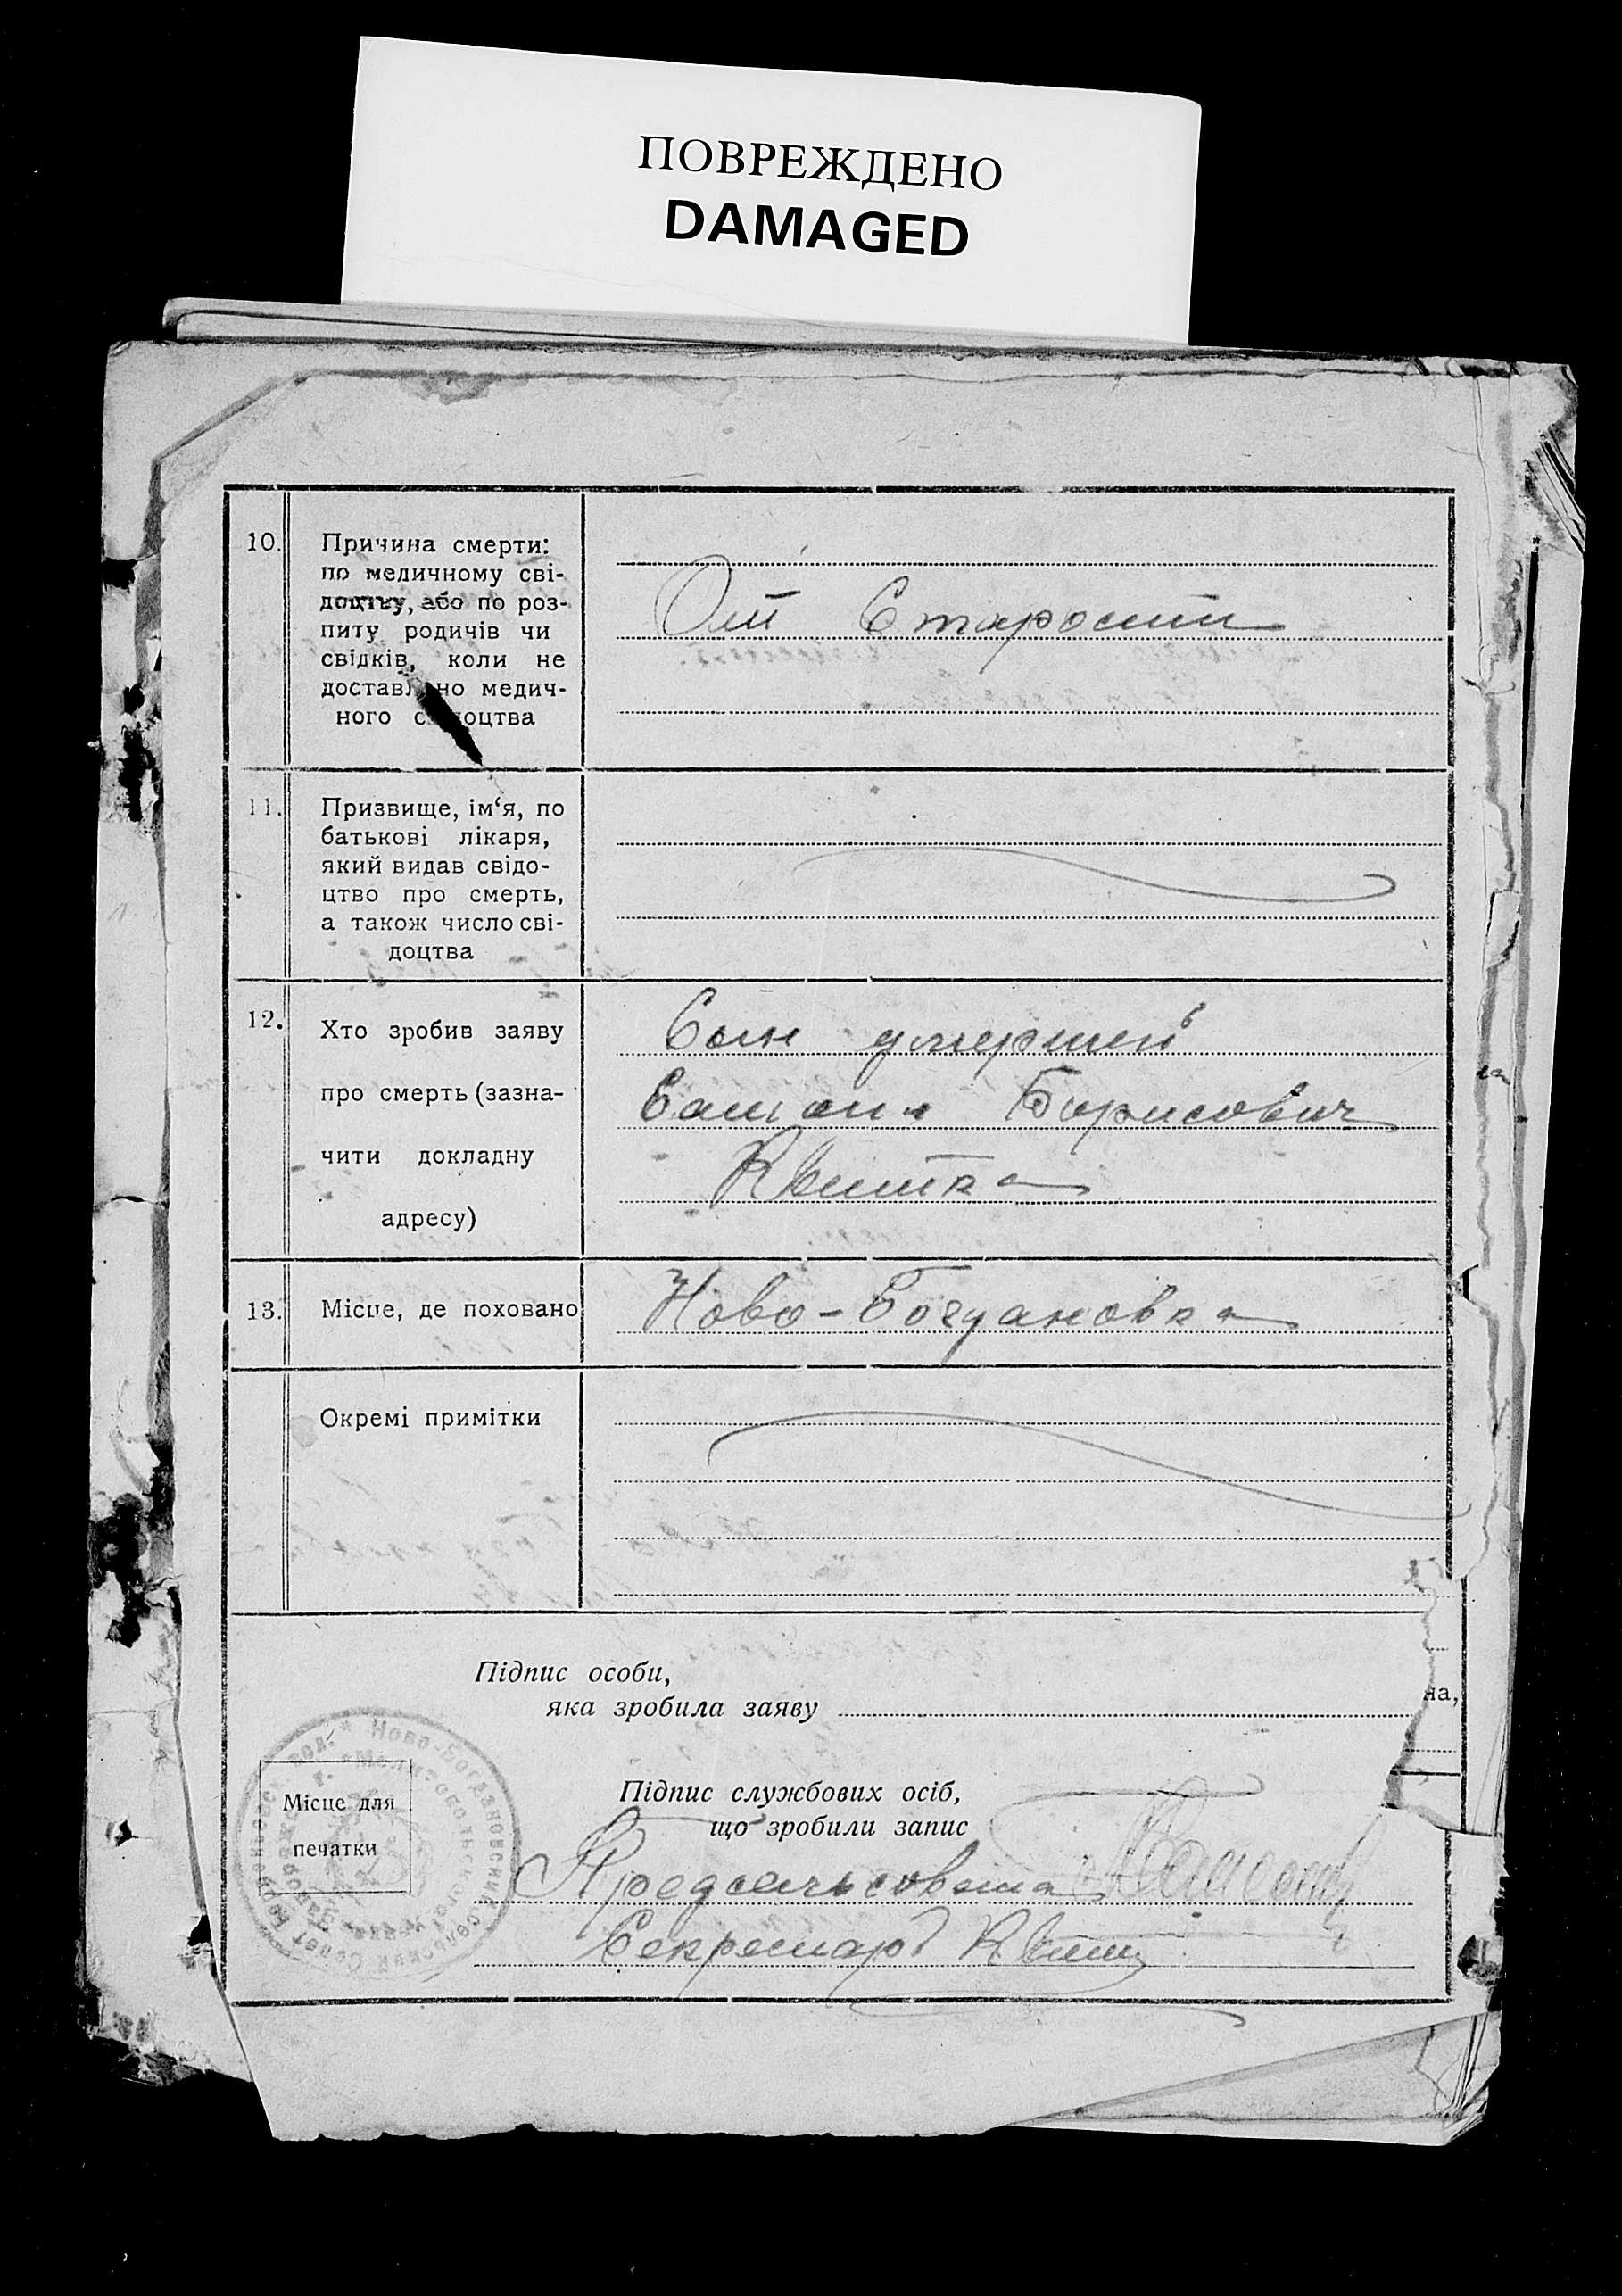 ПОВРЕЖДЕНО
DAMAGED
10.
Причина смерти:
по медичному сві-
доцтву, або по роз-
питу родичів чи
свідків, коли не
доставлено медич-
ного свідоцтва
От Старости
11.
Призвище, ім‘я, по
батькові лікаря,
який видав свідо-
цтво про смерть,
а також число сві-
доцтва
12.
Хто зробив заяву
про смерть (зазна-
чити докладну
адресу)
Сын умершей
Борисович
Квитка
13.
Місце, де поховано
Ново-Богдановка
Окремі примітки
Підпис особи,
яка зробила заяву
на,
Місце для
печатки
Ново-Богдановский сельский Совет
Підпис службових осіб,
що зробили запис
Предсельсовета
Секретарь